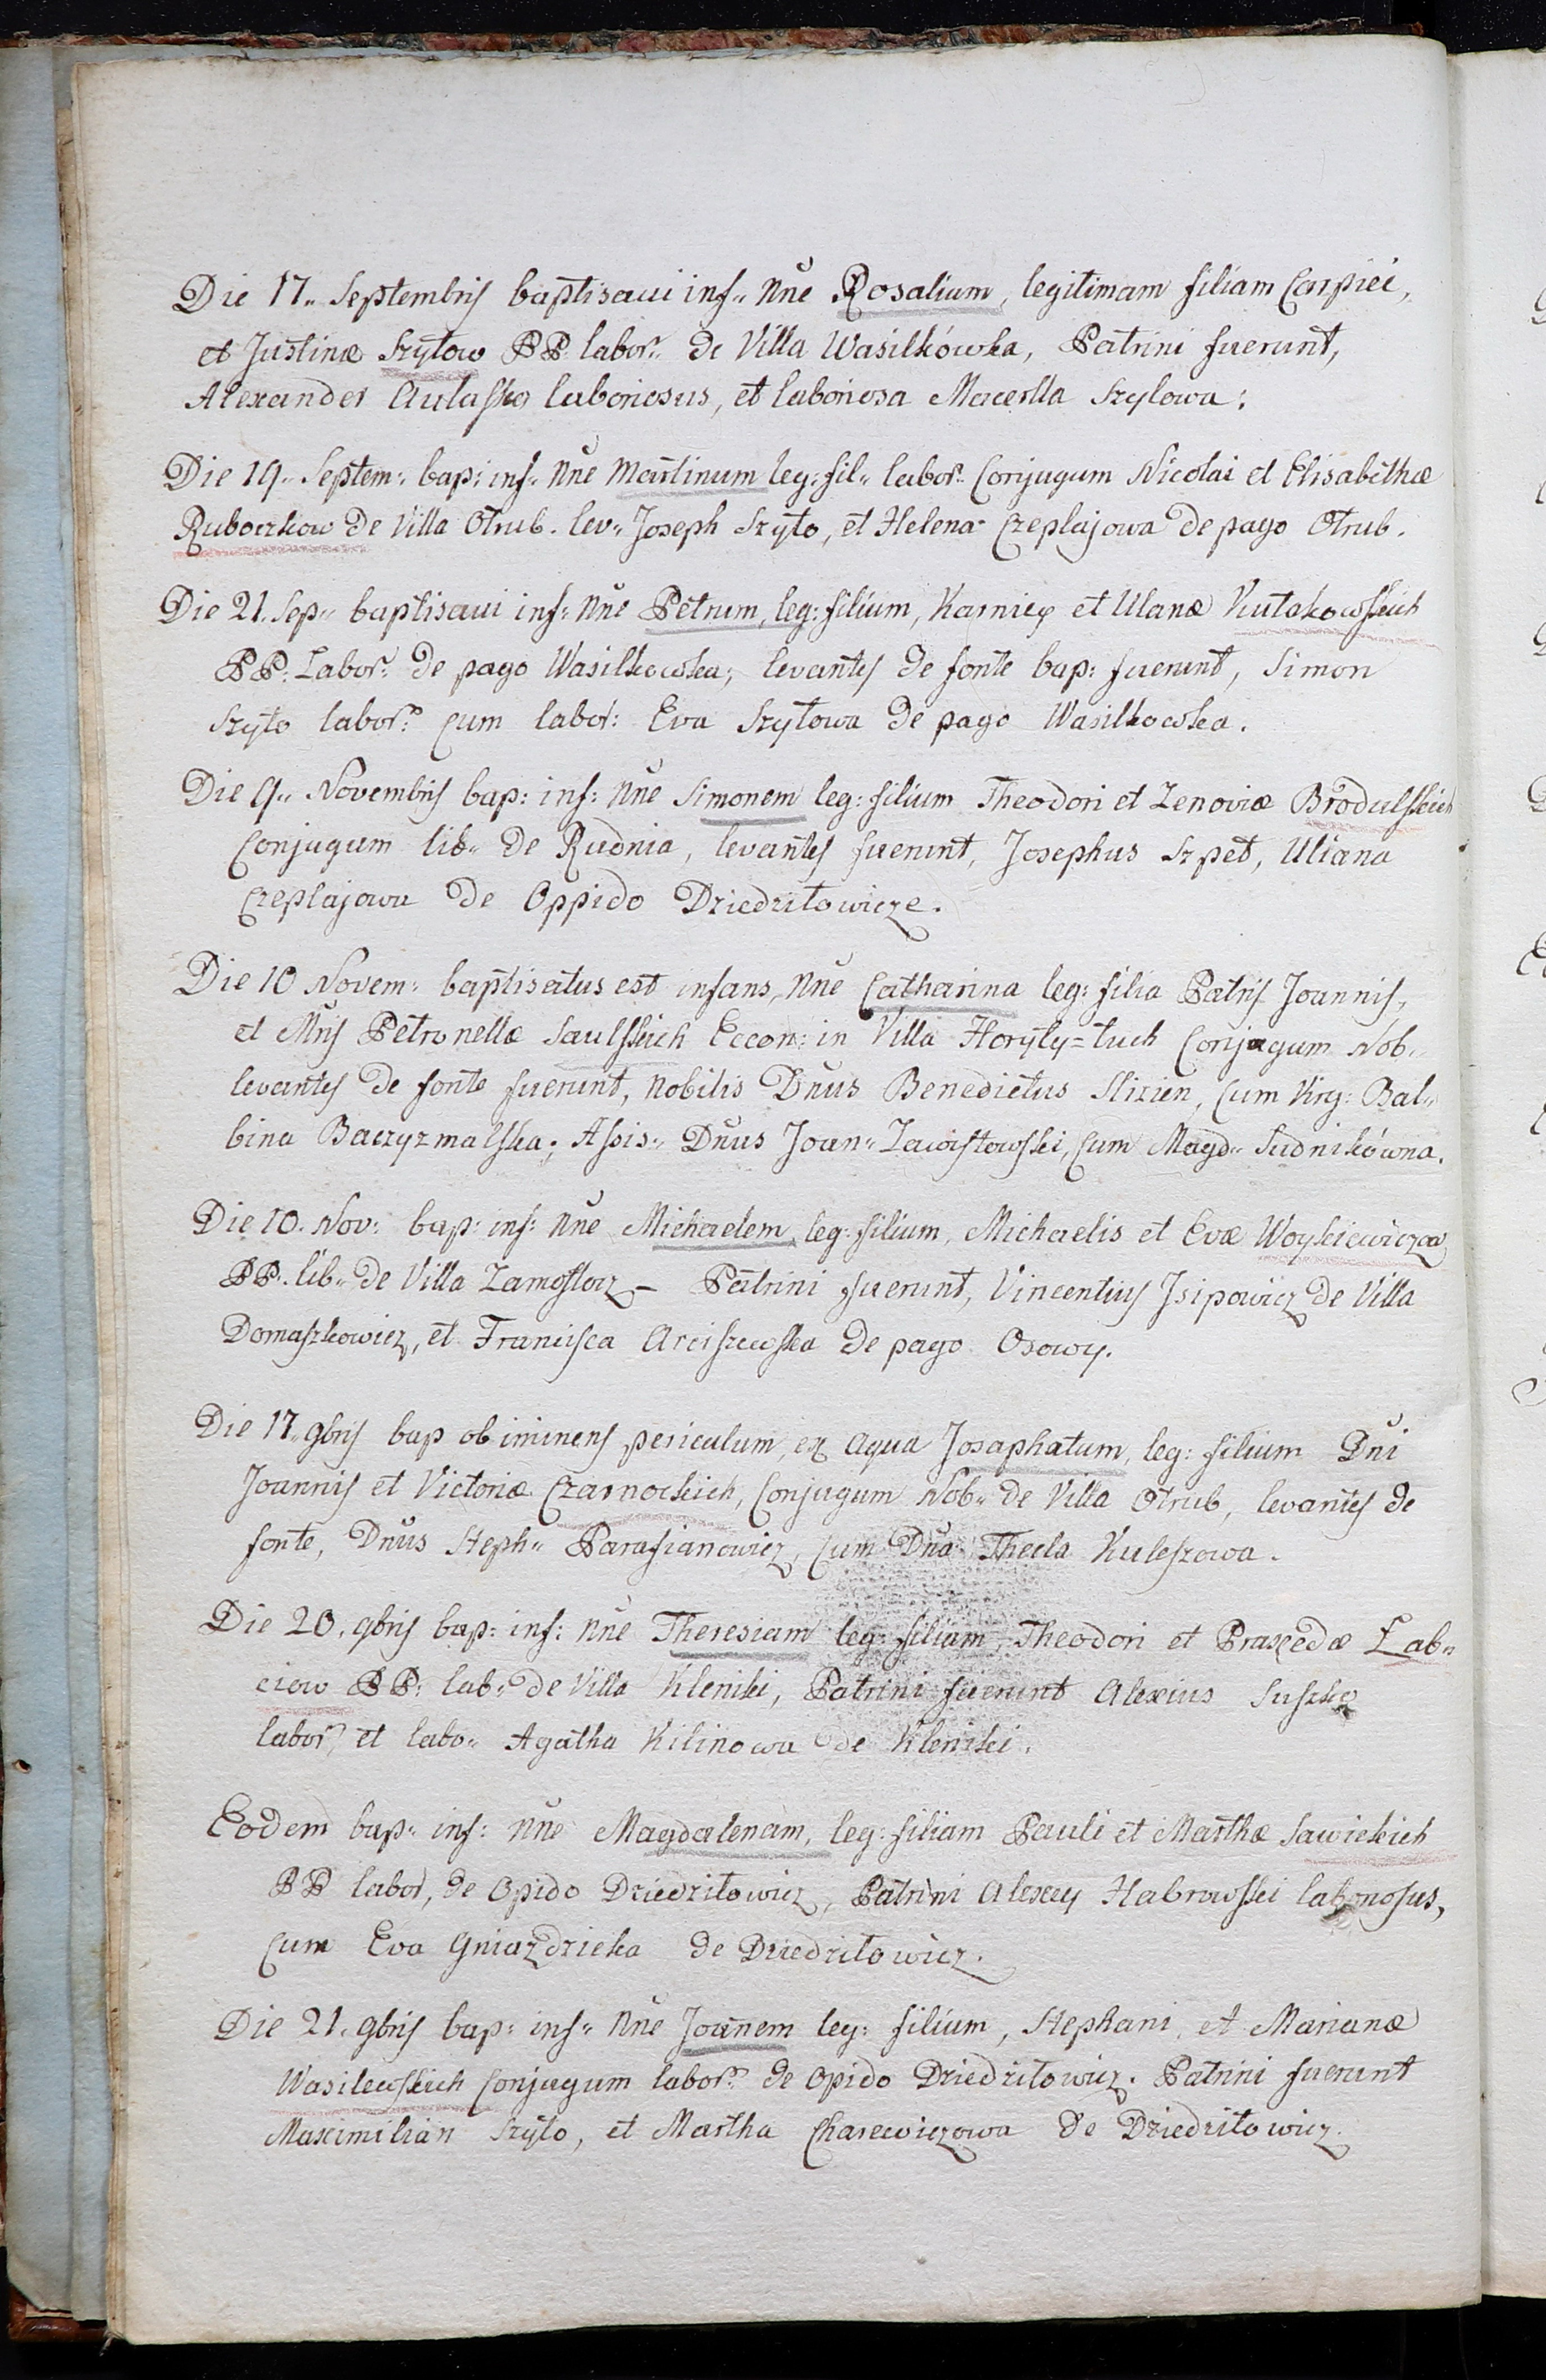 Die 17„ Septembris baptisavi inf„ Nne Rosaliam, legitimam filiam Carpiei,
et Justinæ Szyłow PP. labor: de Villa Wasilkówka, Patrini fuerunt,
Alexander Aułasko laboriosus, et laboriosa Marcella Szyłowa;
Die 19„ Septem: bap: inf„ Nne Martinum leg: fil„ labor: Conjugum Nicolai et Elisabethæ
Ruboczkow de Villa Otrub. lev„ Joseph Szyło, et Helena Czeplajowa de pago Otrub.
Die 21. Sep„ baptisavi inf: Nne Petrum, leg: filium, Karniey et Ulanæ Kutakowskich
PP: Labor: de pago Wasilkowka; levantes de fonte bap: fuerunt, Simon
Szyło labor: cum labor: Eva Szyłowa de pago Wasilkowka.
Die 9„ Novembris bap: inf: Nne Simonem leg: filium Theodori et Zenoviæ Brodalskich
Conjugum lib„ de Rudnia, levantes fuerunt, Josephus Szpet, Uliana
Czeplajowa de Oppido Dziedziłowicze.
Die 10 Novem: baptisatus est infans, Nne Catharina leg: filia Patris Joannis,
et Mris Petronellæ Saulskich Econ: in Villa Horyły=Łuch Conjugum Nob„
levantes de fonte fuerunt, Nobilis Dnus Benedictus Slizien, cum Virg: Bal„
bina Baczyzmalska; Assis„ Dnus Joan„ Zawistowski, cum Magd„ Sudnikówna.
Die 10. Nov: bap: inf: Nne Michaelem, leg: filium, Michaelis et Evæ Woykiewiczow
PP. lib„ de Villa Zamostocz – Patrini fuerunt, Vincentius Isipowicz de Villa
Domaszkowicz, et Francisca Arciszewska de pago Osowy.
Die 17„ 9bris bap ob iminens periculum, ex aqua Josaphatum, leg: filium Dni
Joannis et Victoriæ Czarnockich, Conjugum Nob„ de Villa Otrub, levantes de
fonte, Dnus Steph„ Parafianowicz, cum Dna Thecla Kuleszowa.
Die 20. 9bris bap: inf: Nne Theresiam leg: filiam, Theodori et Praxedæ Łab„
ciow PP: lab„ de Villa Kleniki, Patrini fuerunt Alexius Suszko
labor, et labo„ Agatha Kilinowa de Kleniki.
Eodem bap: inf: Nne Magdalenam, leg: filiam Pauli et Marthæ Sawickich
PP labor, de Opido Dziedziłowicz, Patrini Alexey Habrowski laboriosus,
cum Eva Gniazdzicka de Dziedziłowicz.
Die 21. 9bris bap: inf„ Nne Joannem leg: filium, Stephani, et Marianæ
Wasilewskich Conjugum labor: de Opido Dziedziłowicz. Patrini fuerunt
Maximilian Szyło, et Martha Charewiczowa de Dziedziłowicz.